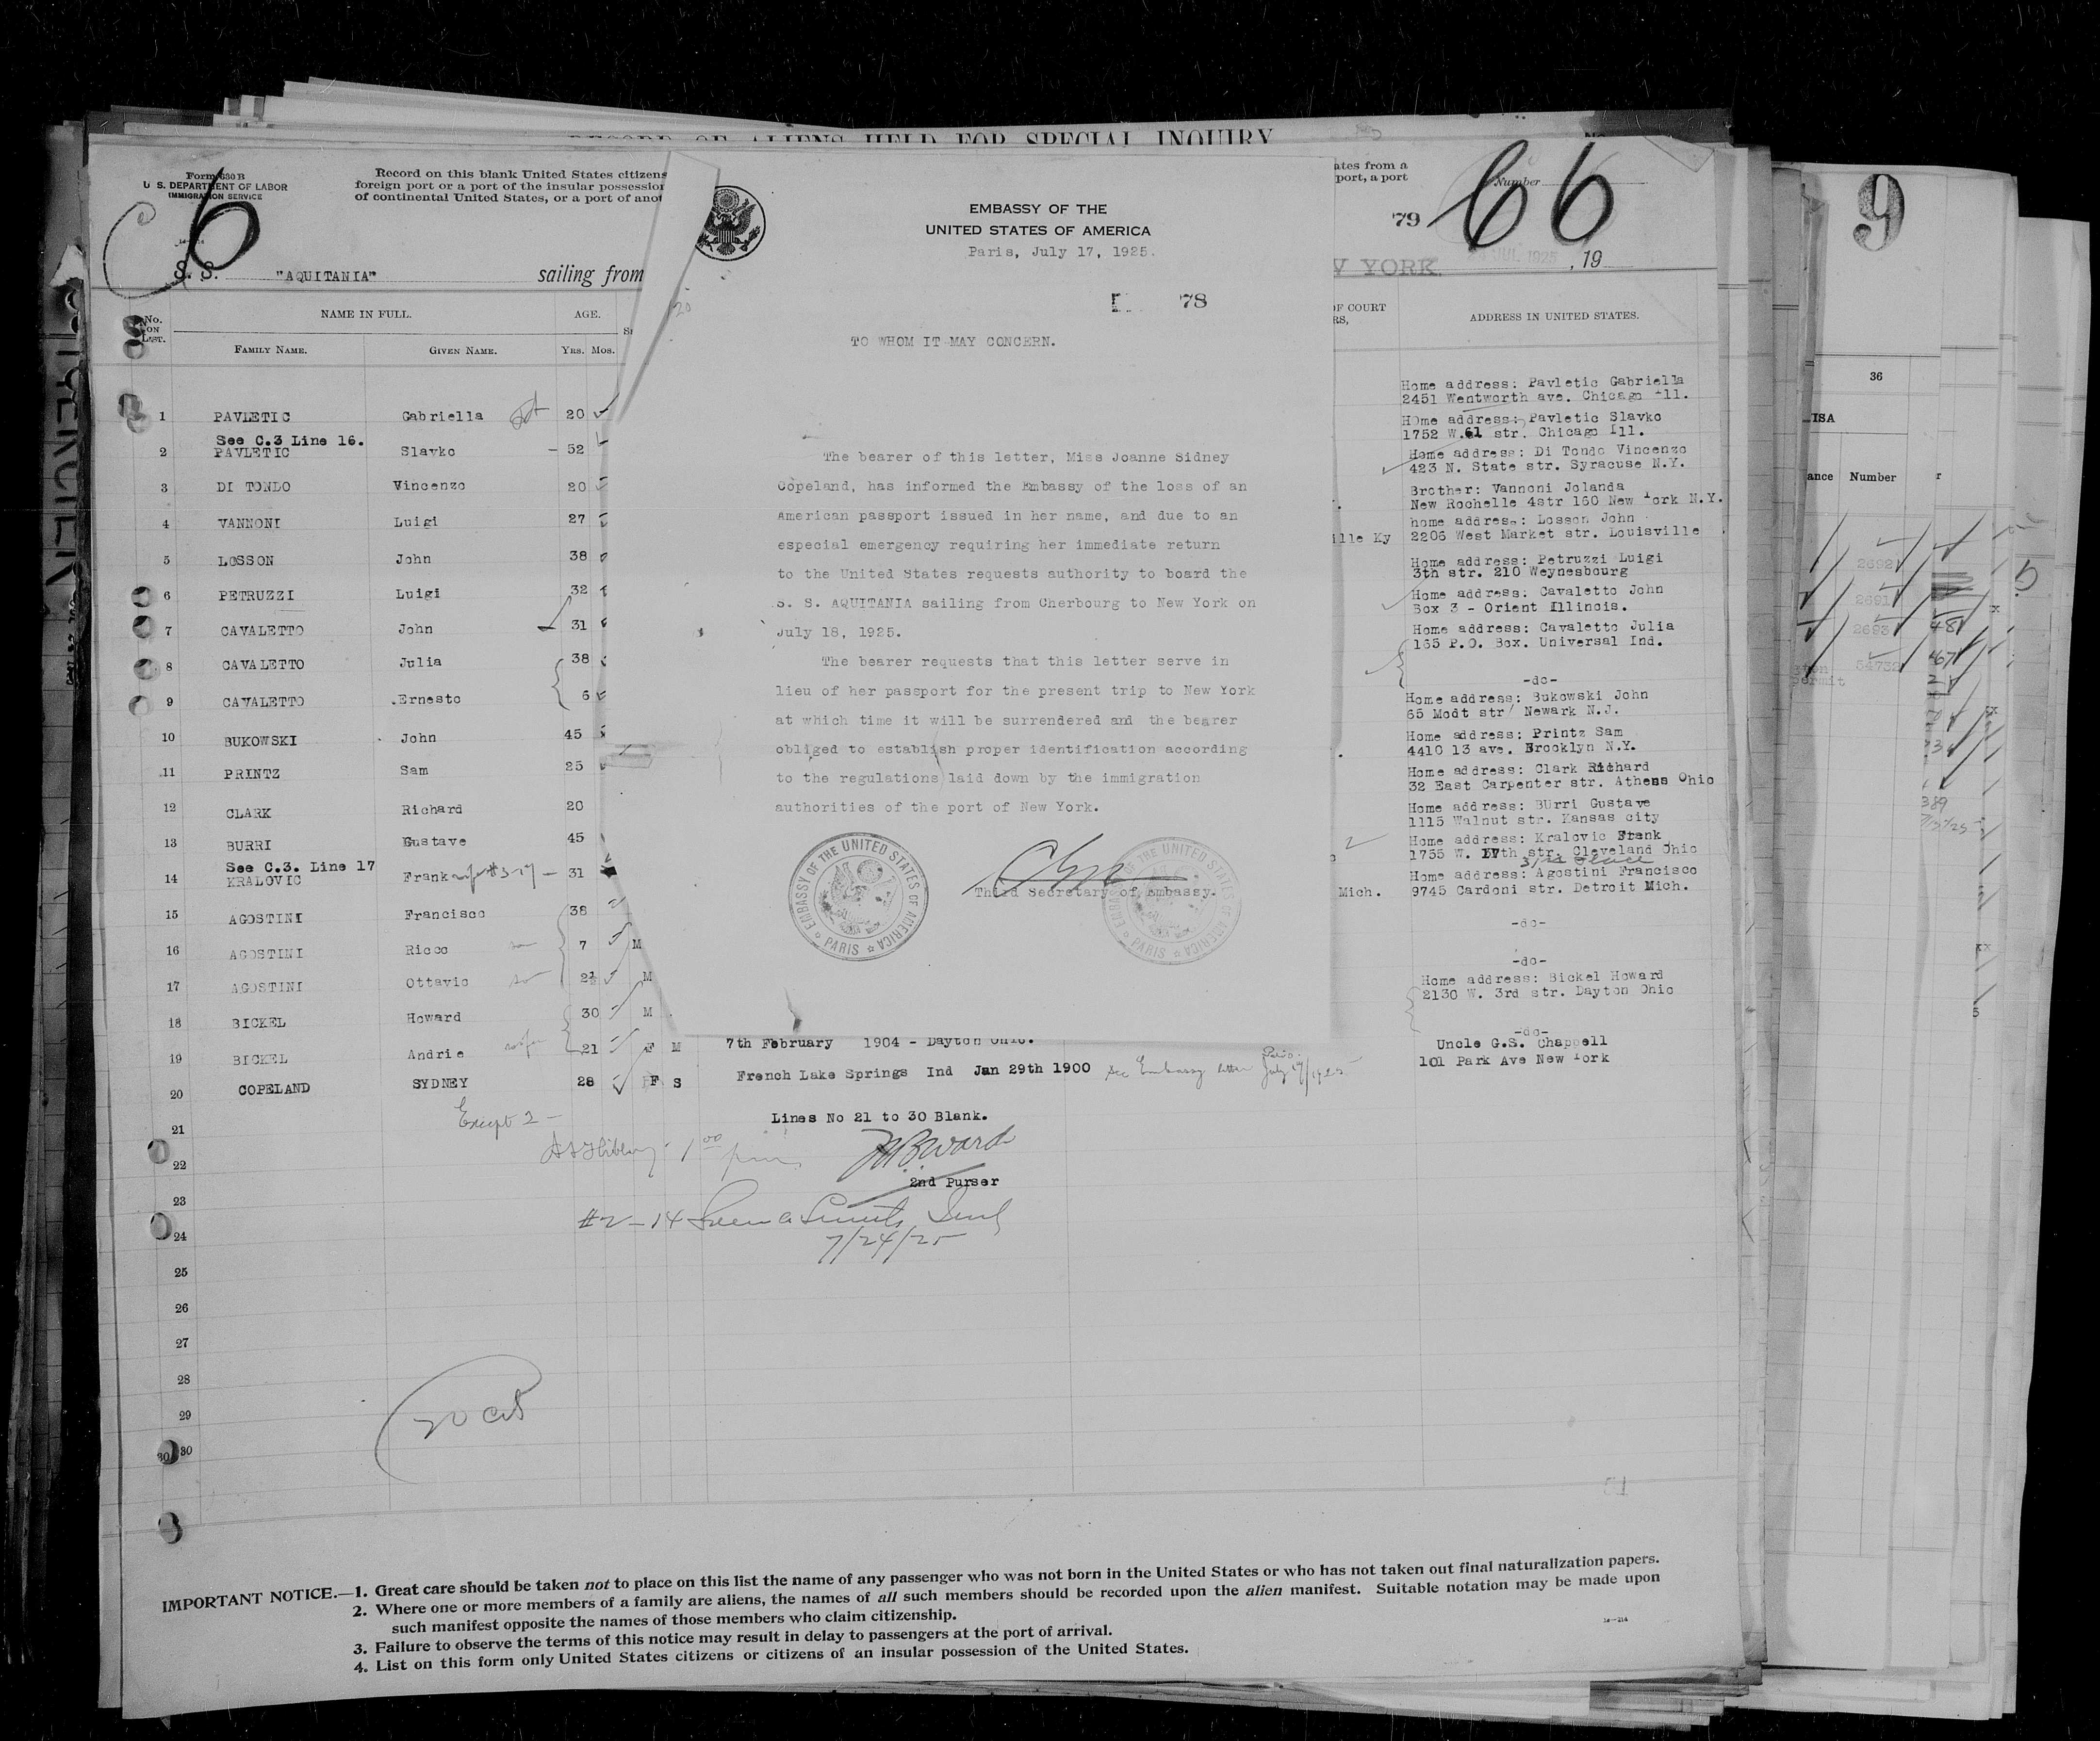 RECORD OF ALIENS HELD FOR SPECIAL INQUIRY
Form 630 B
U. S. DEPARTMENT OF LABOR
IMMIGRATION SERVICE
6
Record on this blank United States citizens
foreign port or a port of the insular possession
of continental United States, or a port of anot
ates from a
port, a port
Number
66
79
S. S. "AQUITANIA" sailing from
W YORK JUL 1925, 19
EMBASSY OF THE
UNITED STATES OF AMERICA
Paris, July 17, 1925.
78
TO WHOM IT MAY CONCERN.
The bearer of this letter, Miss Joanne Sidney
Copeland, has informed the Embassy of the loss of an
American passport issued in her name, and due to an
especial emergency requiring her immediate return
to the United States requests authority to board the
S. S. AQUITANIA sailing from Cherbourg to New York on
July 18, 1925.
The bearer requests that this letter serve in
lieu of her passport for the present trip to New York
at which time it will be surrendered and the bearer
obliged to establish proper identification according
to the regulations laid down by the immigration
authorities of the port of New York.
Third Secretary of Embassy.
EMBASSY OF THE UNITED STATES OF AMERICA
PARIS
EMBASSY OF THE UNITED STATES OF AMERICA
PARIS
No. ON LIST.
NAME IN FULL.
AGE.
FAMILY NAME.
GIVEN NAME.
YRS. MOS.
OF COURT
RS,
ADDRESS IN UNITED STATES.
1 PAVLETIC Gabriella 20
See C.3 Line 16.
2 PAVLETIC Slavko - 52
3 DI TONDO Vincenzo 20
4 VANNONI Luigi 27
5 LOSSON John 38
6 PETRUZZI Luigi 32
7 CAVALETTO John 31
8 CAVALETTO Julia 38
9 CAVALETTO Ernesto 6
10 BUKOWSKI John 45
11 PRINTZ Sam 25
12 CLARK Richard 20
13 BURRI Gustave 45
See C.3. Line 17
14 KRALOVIC Frank 31
15 AGOSTINI Francisco 38
16 AGOSTINI Ricco 7 M
17 AGOSTINI Ottavio 2½ M
18 BICKEL Howard 30 M
19 BICKEL Andrie 21 F M 7th February 1904 - Dayton Ohio.
20 COPELAND SYDNEY 28 F S French Lake Springs Ind Jan 29th 1900 See Embassy letter Paris July 17/1925
Home address: Pavletic Gabriella
2451 Wentworth ave. Chicago Ill.
HOme address: Pavletic Slavko
1752 W.61 str. Chicago Ill.
Home address: Di Tondo Vincenzo
423 N. State str. Syracuse N.Y.
Brother: Vannoni Jolanda
New Rochelle 4str 160 New York N.Y.
home address: Losson John
ille Ky 2206 West Market str. Louisville
Home address: Petruzzi Luigi
3th str. 210 Weynesbourg
Home address: Cavaletto John
Box 3 - Orient Illinois.
Home address: Cavaletto Julia
165 P.O. Box. Universal Ind.
-do-
Home address: Bukowski John
65 Modt str Newark N.J.
Home address: Printz Sam
4410 13 ave. Brooklyn N.Y.
Home address: Clark Richard
32 East Carpenter str. Athens Ohio
Home address: BUrri Gustave
1115 Walnut str. Kansas city
Home address: Kralovic Frank
1755 W. th str. Cleveland Ohio
Home address: Agostini Francisco
Mich. 9745 Cardoni str. Detroit Mich.
-do-
-do-
Home address: Bickel Howard
2130 W. 3rd str. Dayton Ohio
-do-
Uncle G.S. Chappell
101 Park Ave New York
21
Except 2 -
Lines No 21 to 30 Blank.
22
2nd Purser
23
24
7/24/25
25
26
27
28
29
30
IMPORTANT NOTICE.—1. Great care should be taken not to place on this list the name of any passenger who was not born in the United States or who has not taken out final naturalization papers.
2. Where one or more members of a family are aliens, the names of all such members should be recorded upon the alien manifest. Suitable notation may be made upon
such manifest opposite the names of those members who claim citizenship.
3. Failure to observe the terms of this notice may result in delay to passengers at the port of arrival.
4. List on this form only United States citizens or citizens of an insular possession of the United States.
14—214
9
36
ISA
ance Number
2692
2691
2693
54732
permit
48
67
389
5